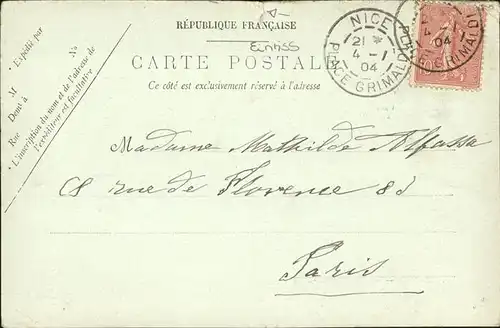 RÉPUBLIQUE FRANÇAISE
CARTE POSTALE
Ce côté est exclusivement réservé à l'adresse
• Expédié par
No
M
Demt à
Rue
• L'inscription du nom et de l'adresse de
l'expéditeur est facultative
NICE
21
4 - 1
04
PLACE GRIMALDI
4
04
GRIMALDI
Madame Mathilde Alfassa
rue de Florence 8d
Paris